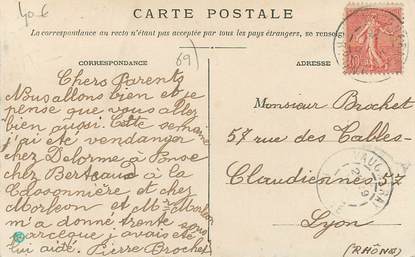 40 €
CARTE POSTALE
La correspondance au recto n'étant pas acceptée par tous les pays étrangers, se renseig
CORRESPONDANCE
69)
ADRESSE
Chers Parents
Nous allons bien et je
pense que vous allez
bien aussi. Cette semaine
j'ai été vendanger
chez Delorme à
chez Berteaud à la
et chez
Morleon et Mr Morleon
m'a donné trente sous
parceque j'avais été
lui aidé. Pierre Brochet
Monsieur Brochet
57 rue des Tables-
Claudiennes 57
Lyon
(RHÔNE)
10